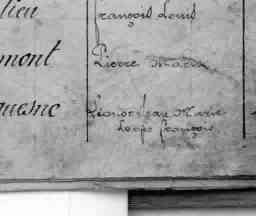 lieu François Louis
mont Pierre Marie
quesne Léonor Jean Marie
Loups françois